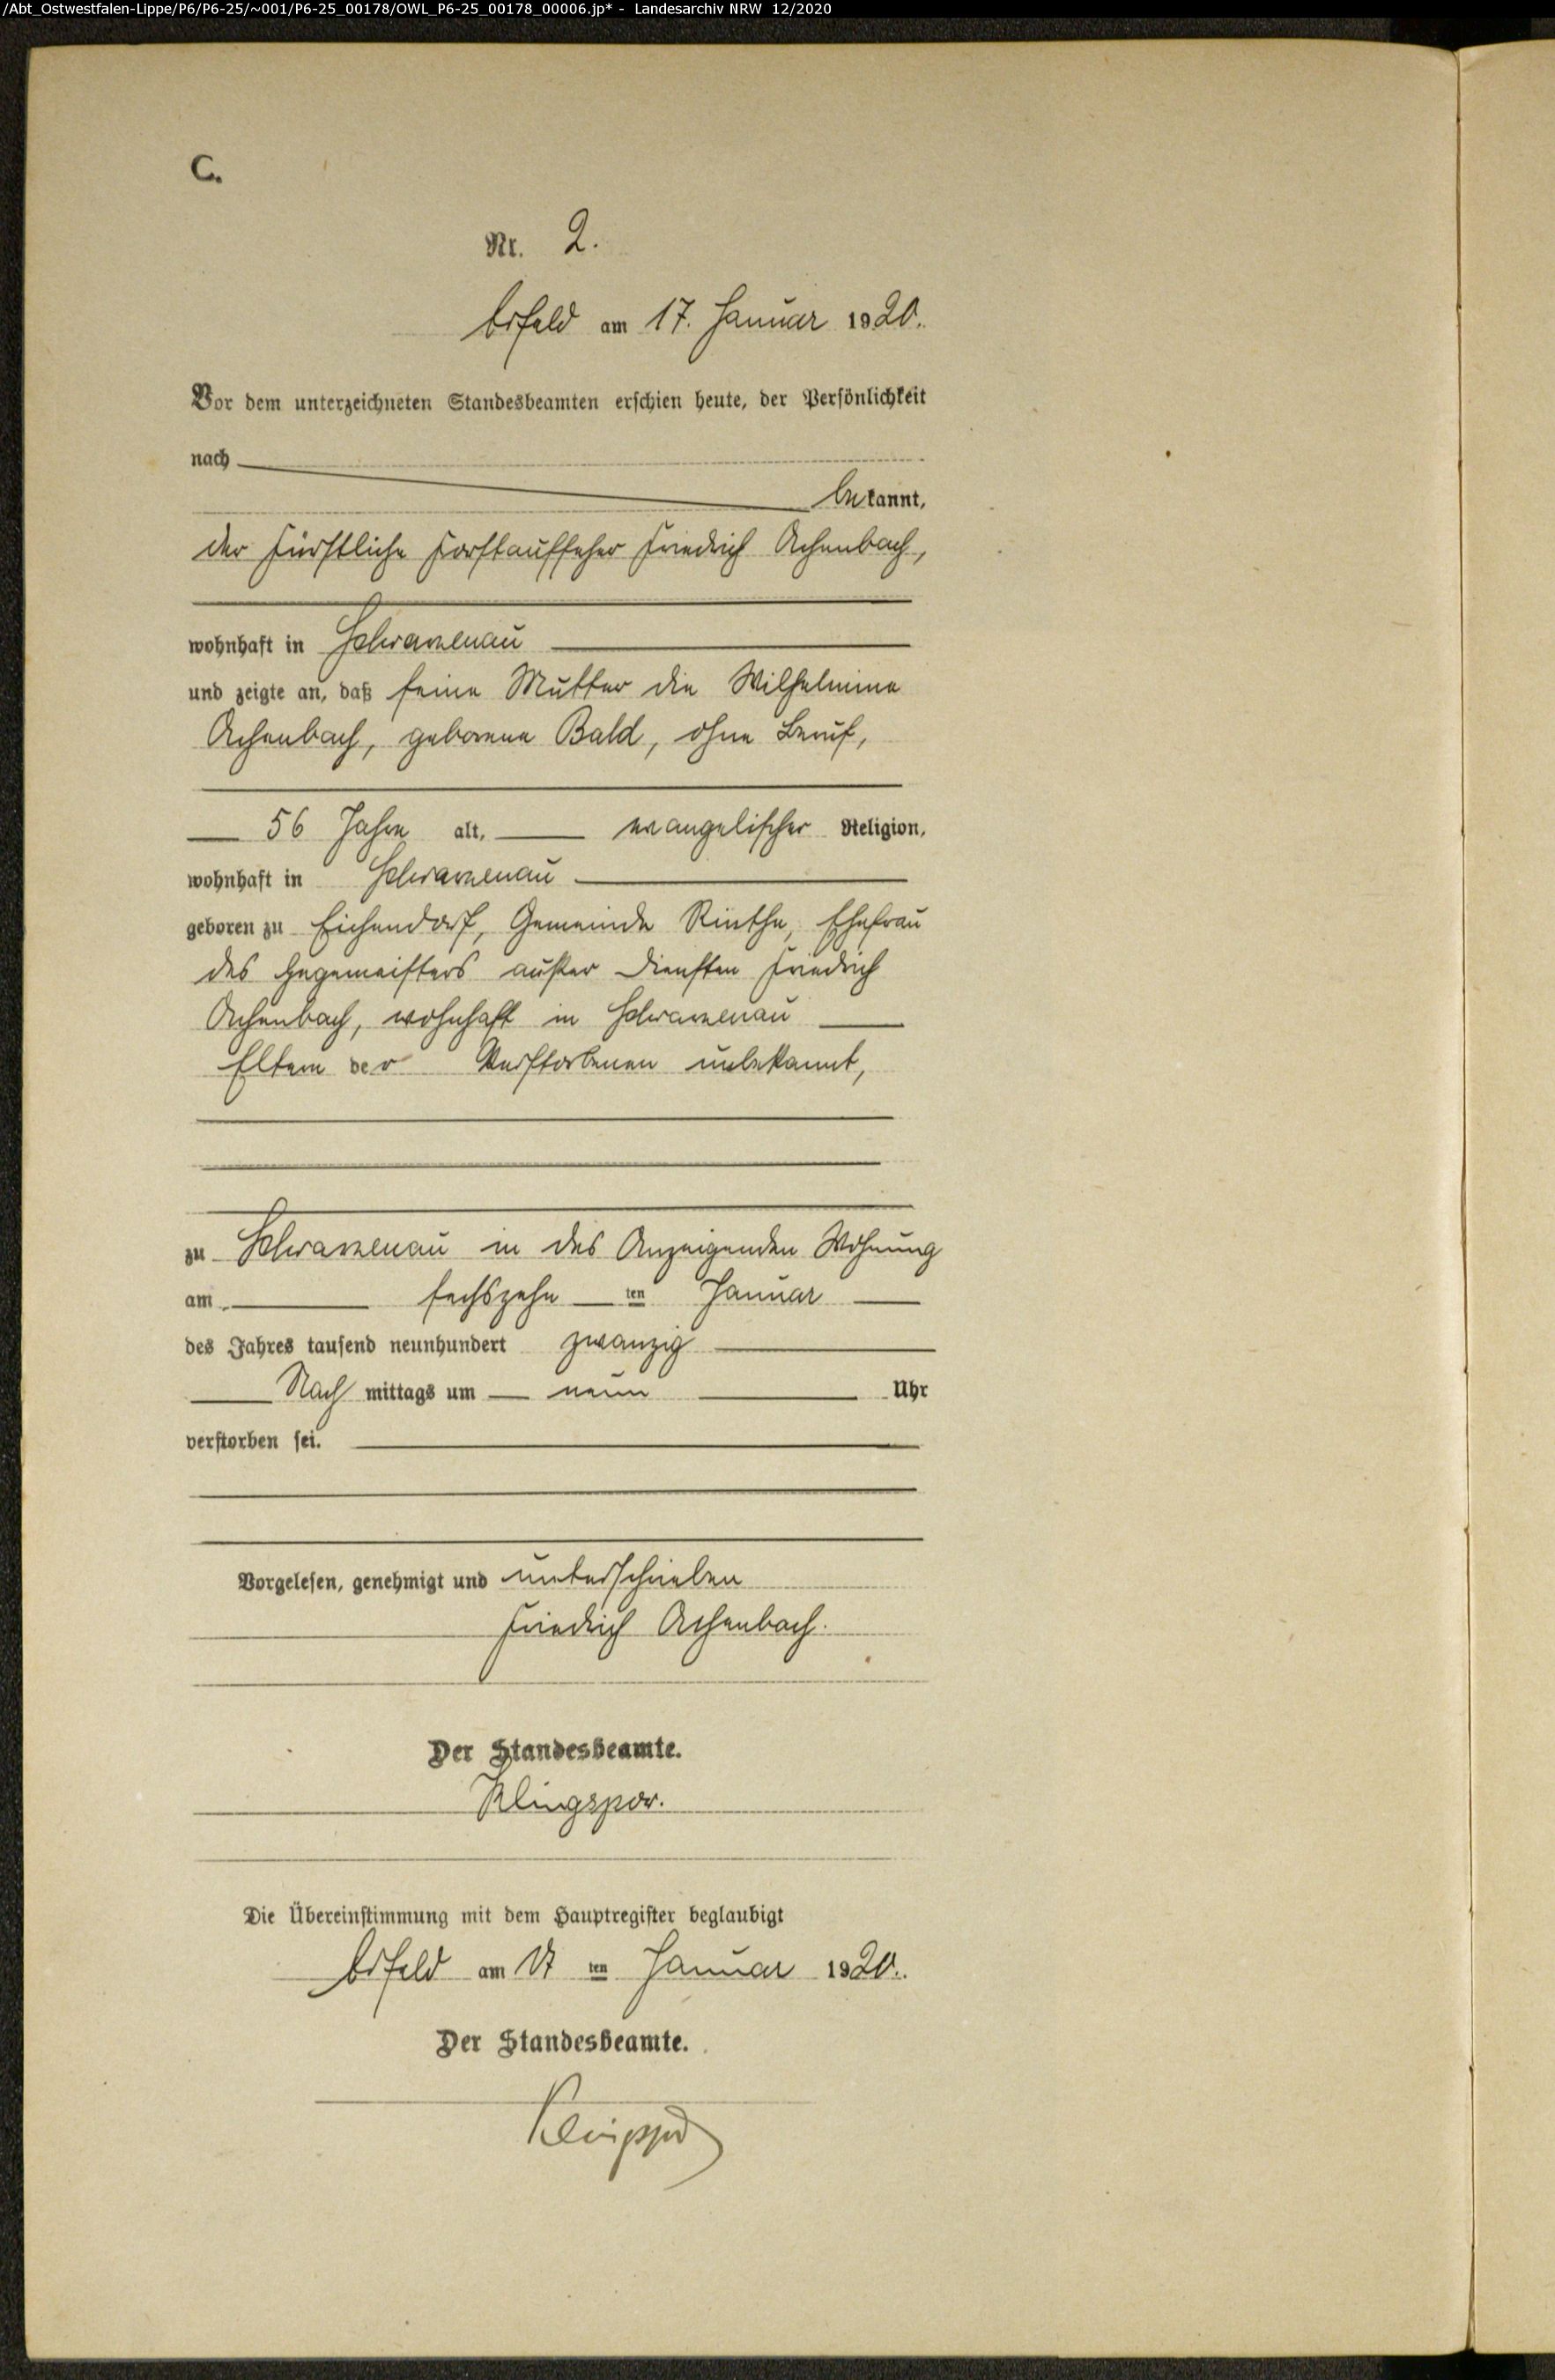 /Abt_Ostwestfalen-Lippe/P6/P6-25/~001/P6-25_00178/OWL_P6-25_00178_00006.jp* - Landesarchiv NRW 12/2020
C.
Nr. 2.
am 17. Januar 1920.
Vor dem unterzeichneten Standesbeamten erschien heute, der Persönlichkeit
nach
bekannt,
der Fürstliche Forstaufseher Friedrich Achenbach,
wohnhaft in Schwarzenau
und zeigte an, daß seine Mutter die Wilhelmine
Achenbach, geborene Bald, ohne Beruf,
56 Jahre alt, evangelischer Religion,
wohnhaft in Schwarzenau
geboren zu Eichendorf, Gemeinde Rinthe, Ehefrau
des Hegemeisters außer Diensten Friedrich
Achenbach, wohnhaft in Schwarzenau
Eltern der Verstorbenen unbekannt,
zu Schwarzenau in des Anzeigenden Wohnung
am sechszehn ten Januar
des Jahres tausend neunhundert zwanzig
Nach mittags um neun Uhr
verstorben sei.
Vorgelesen, genehmigt und unterschrieben
Friedrich Achenbach.
Der Standesbeamte.
Klingspor.
Die Übereinstimmung mit dem Hauptregister beglaubigt
am 17 ten Januar 1920.
Der Standesbeamte.
Klingspor